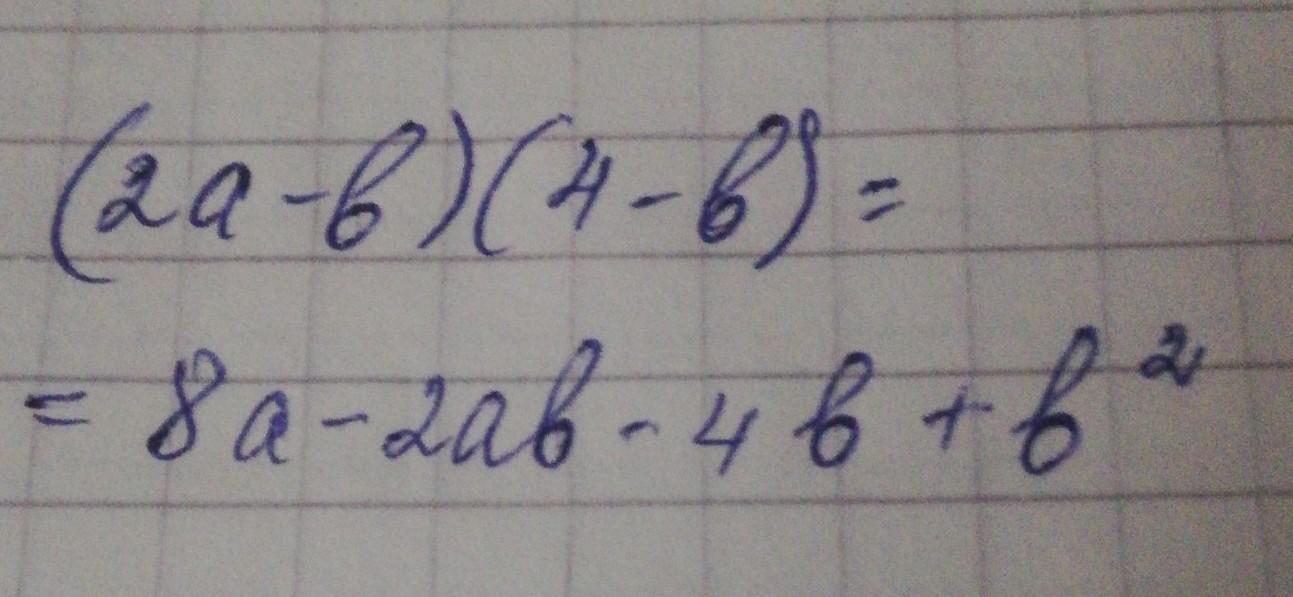 (2a-b)(4-b)=
= 8a-2ab-4b+b²